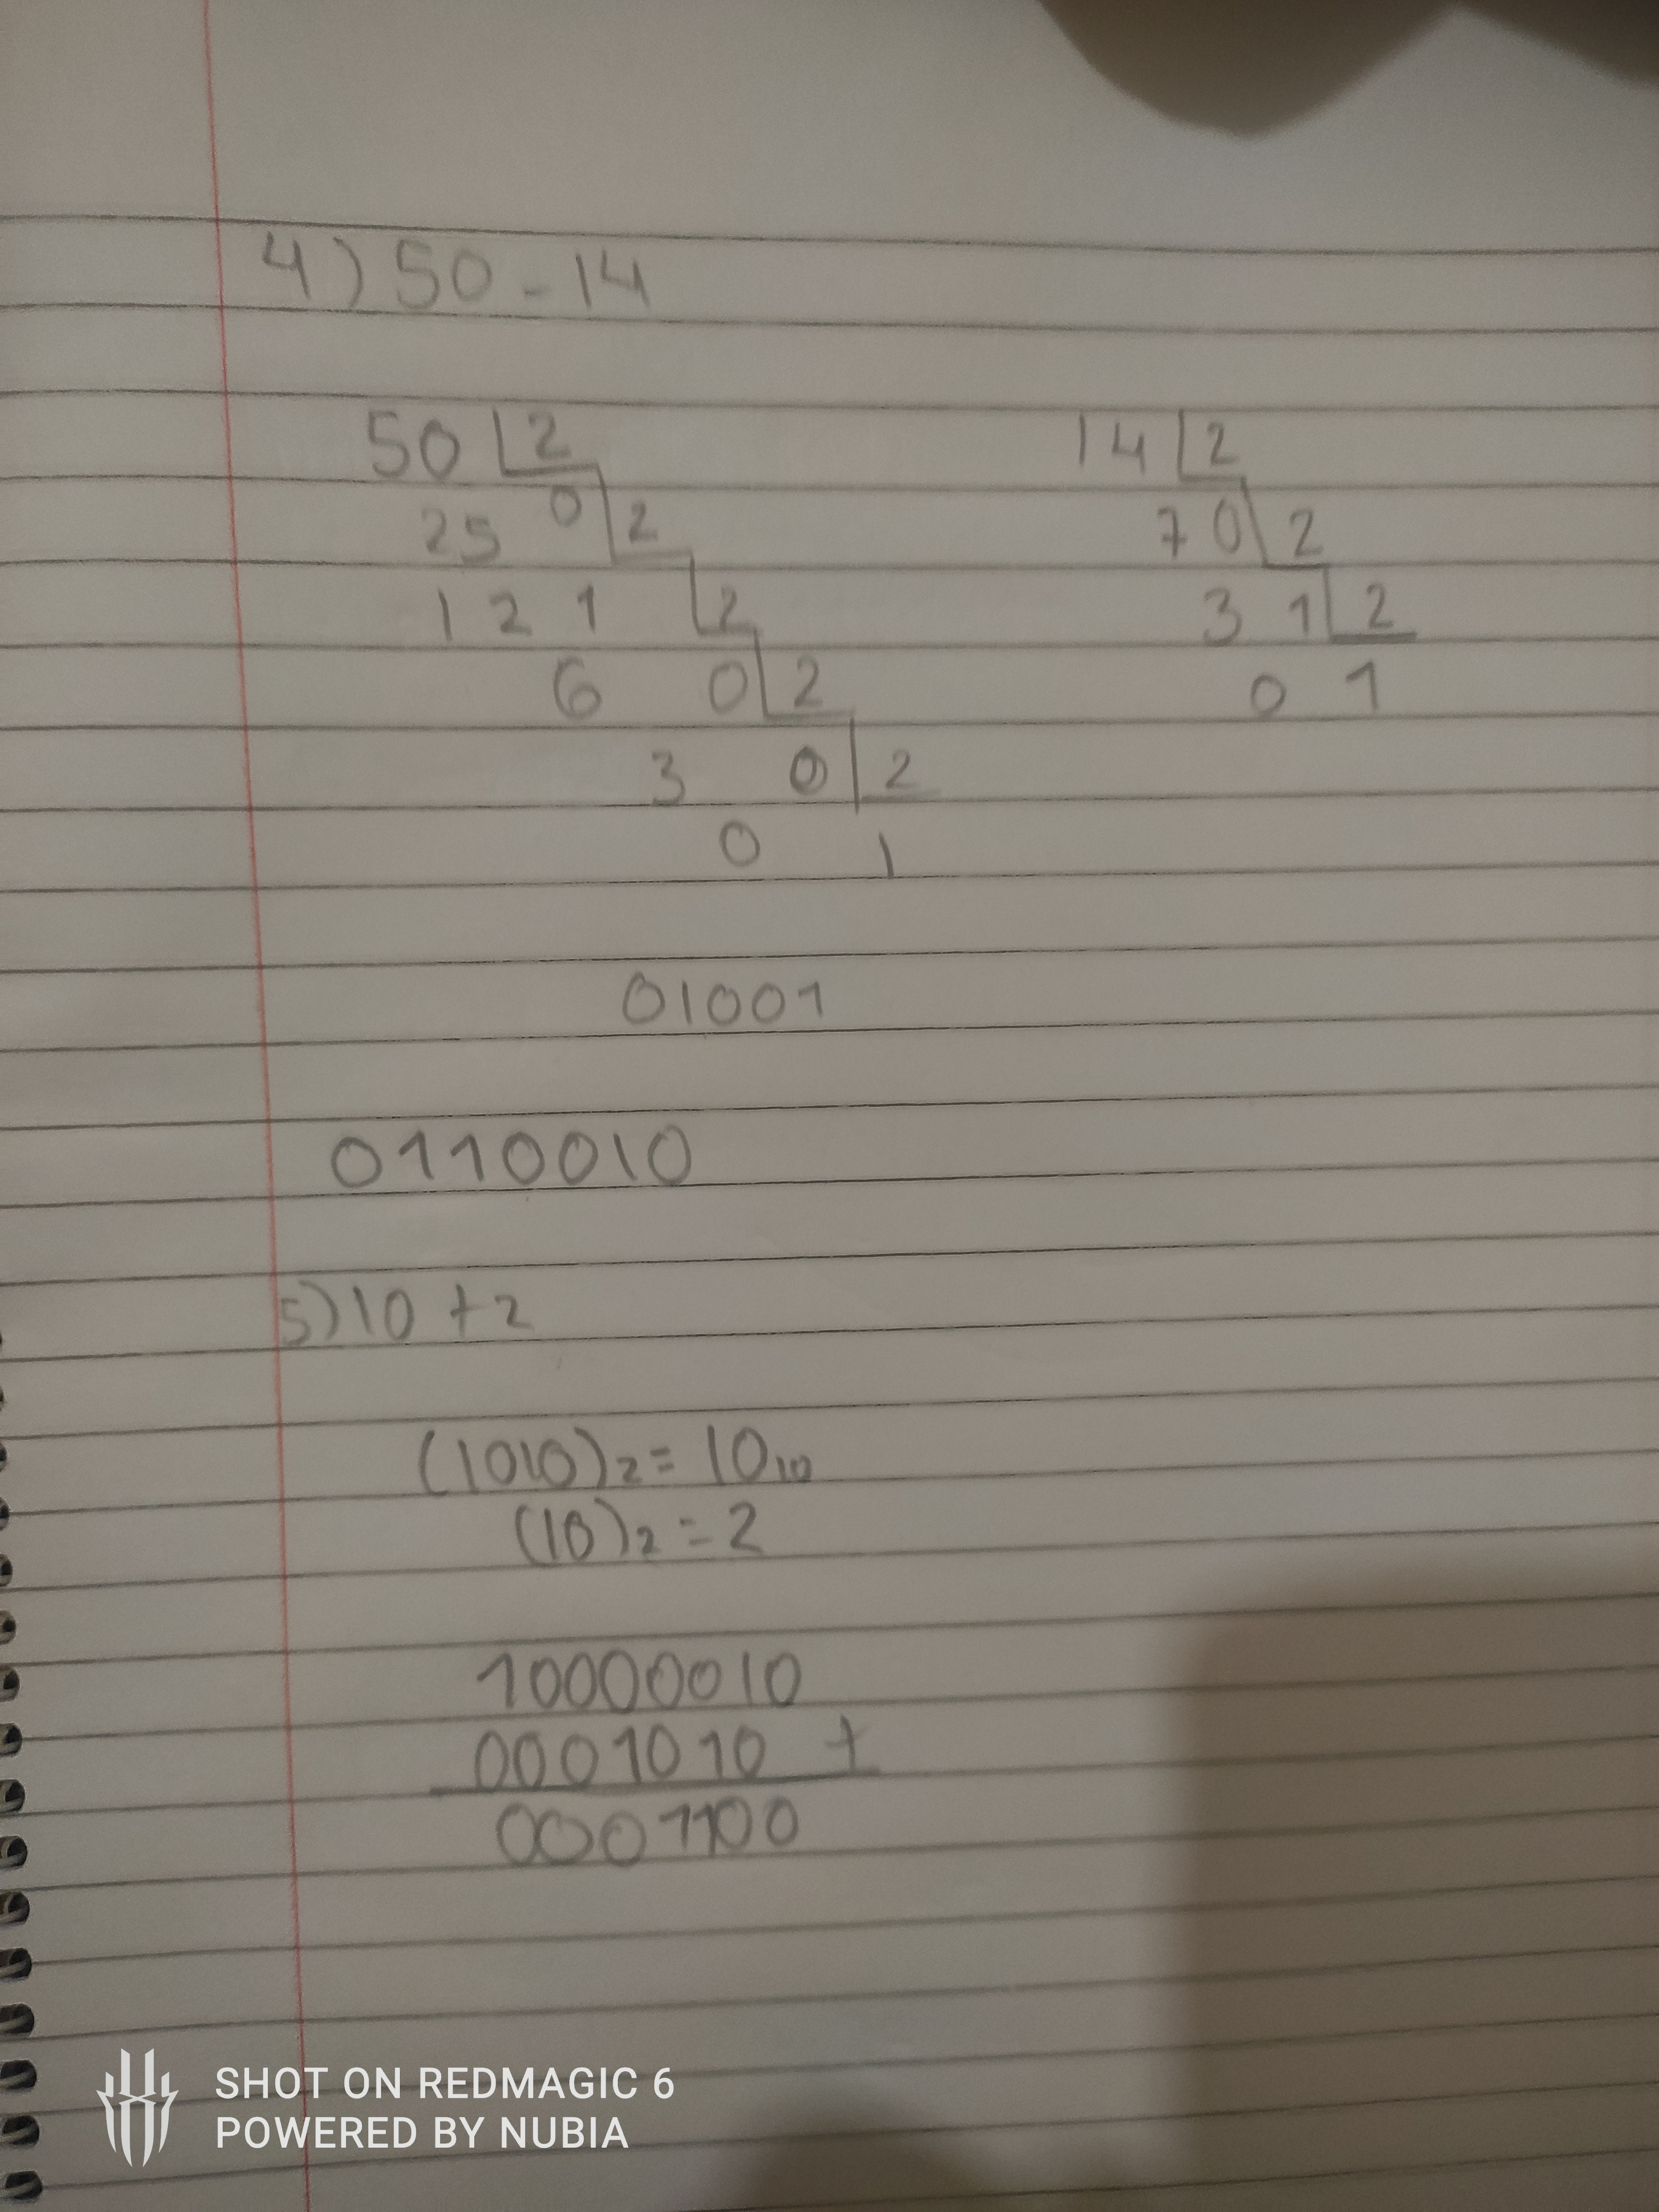 4) 50 - 14
50 2 14 2
25 0 2 7 0 2
12 1 2 3 1 2
6 0 2 0 1
3 0 2
0 1
01001
0110010
5) 10 + 2
(1010)2 = 10 10
(10)2 = 2
10000010
0001010 +
0001100
SHOT ON REDMAGIC 6
POWERED BY NUBIA